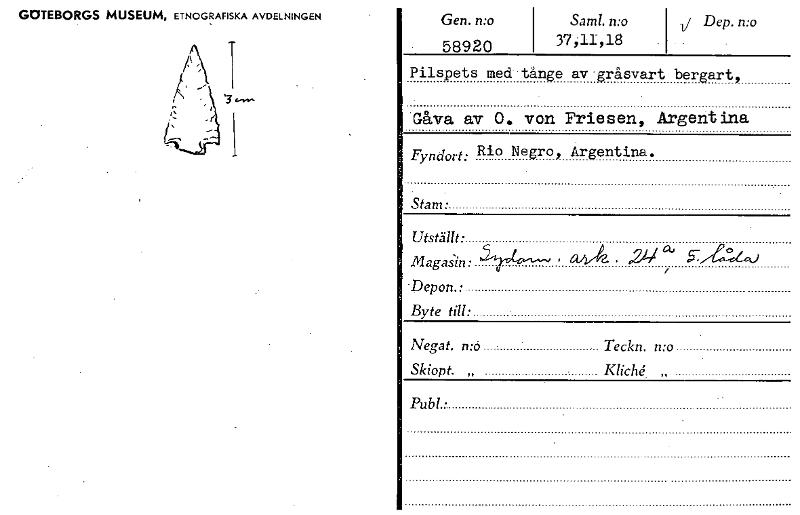 GÖTEBORGS MUSEUM, ETNOGRAFISKA AVDELNINGEN
3 cm
Gen. n:o Saml. n:o √ Dep. n:o
58920 37,11,18
Pilspets med tånge av gråsvart bergart,
Gåva av O. von Friesen, Argentina
Fyndort: Rio Negro, Argentina.
Stam:
Utställt:
Magasin: Sydam. ark. 24a, 5. låda
Depon.:
Byte till:
Negat. n:o Teckn. n:o
Skiopt. „ Kliché „
Publ.: